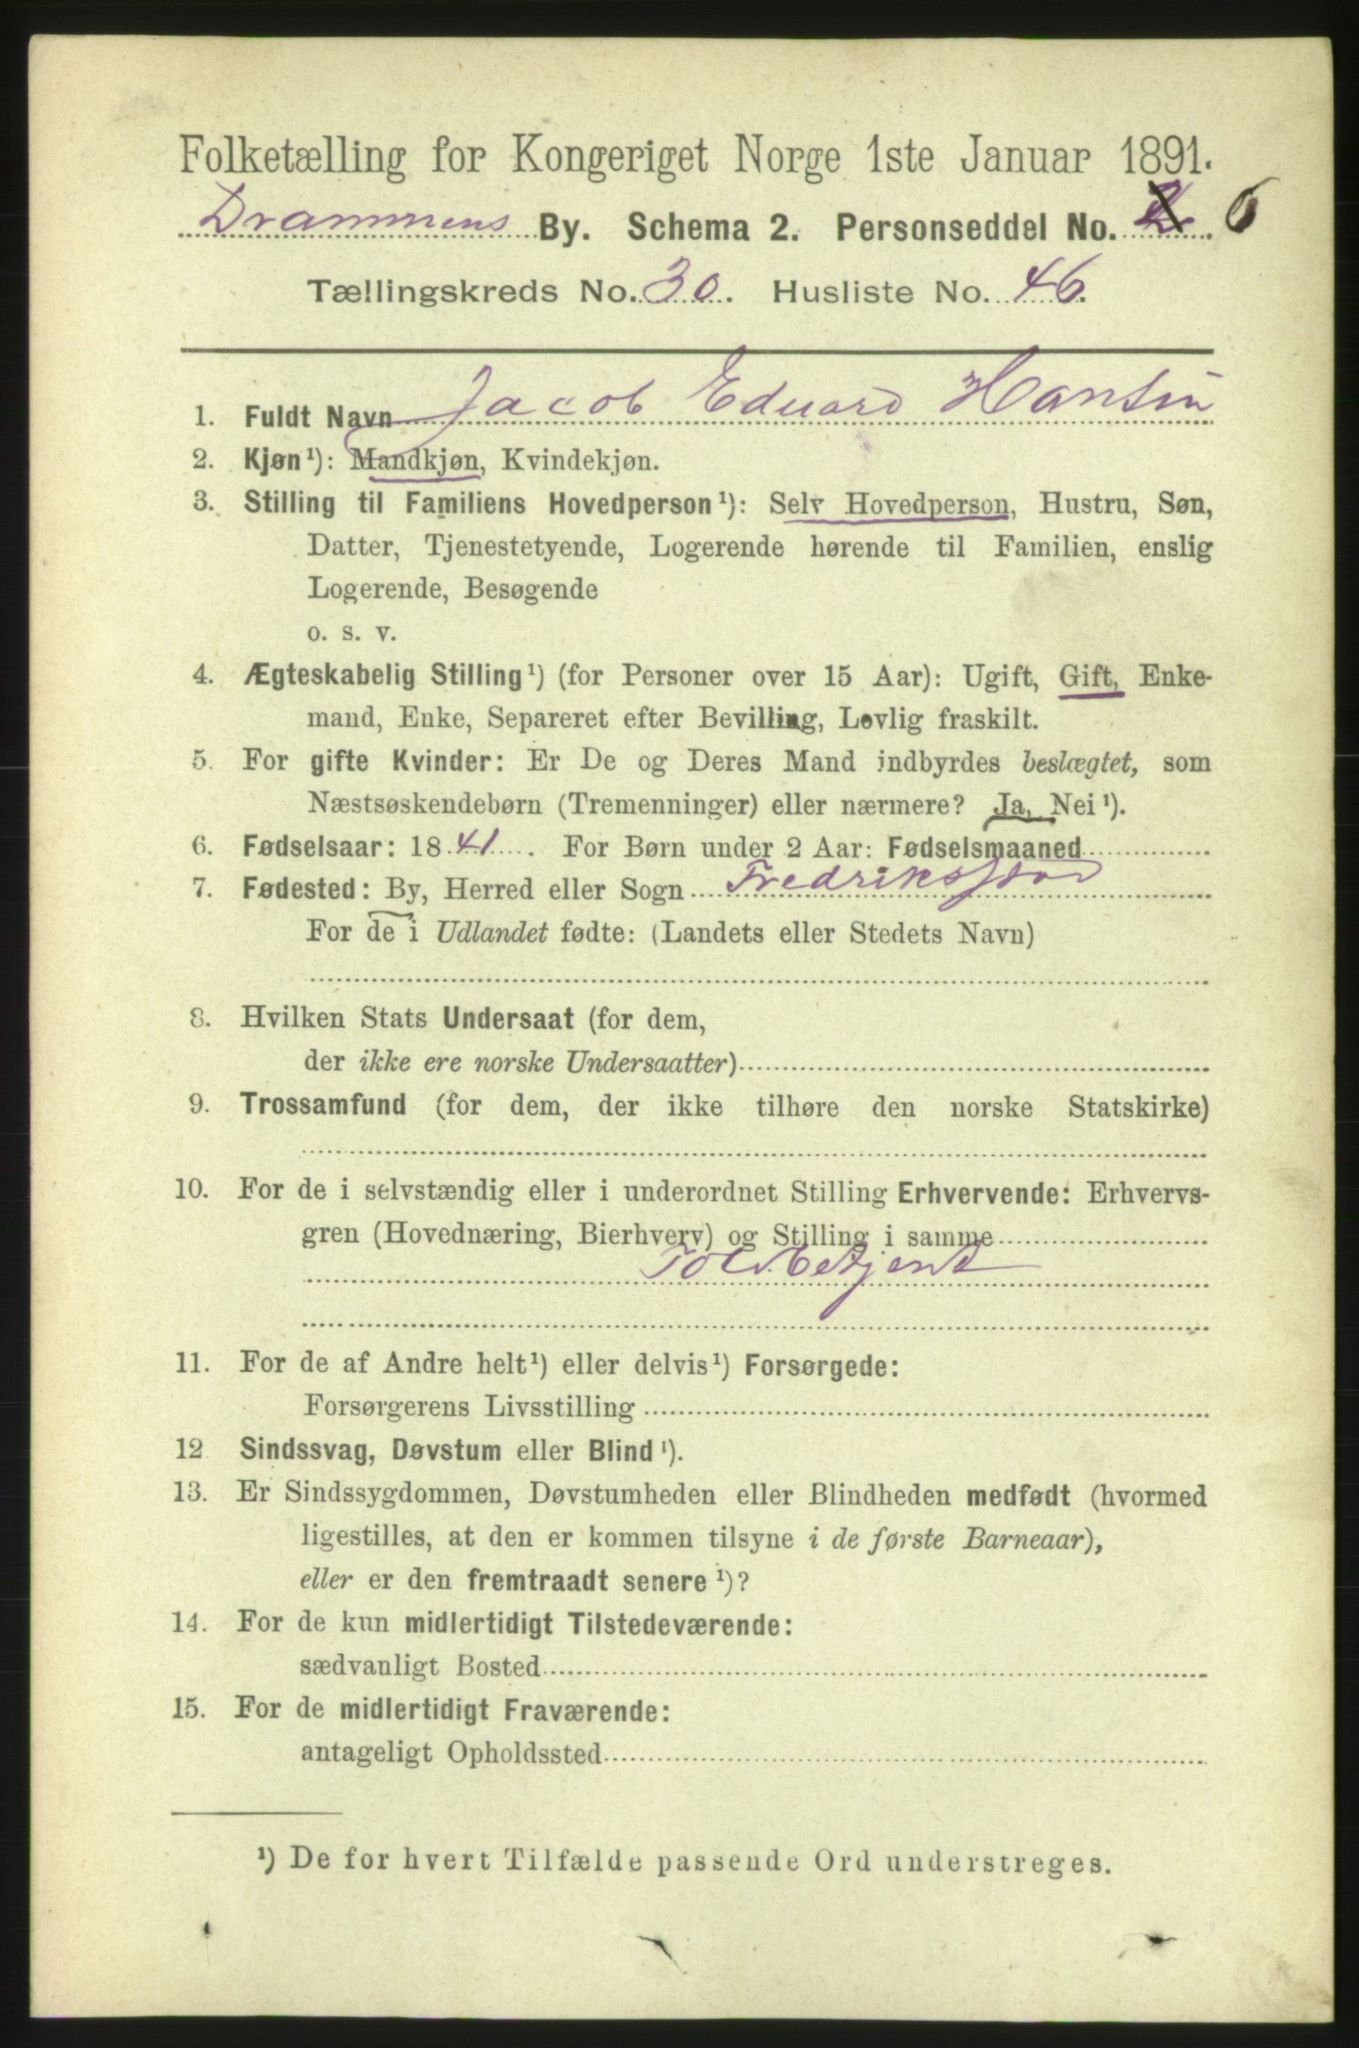 Folketælling for Kongeriget Norge 1ste Januar 1891.
Drammens By. Schema 2. Personseddel No. 2. 6
Tællingskreds No. 30. Husliste No. 46.
1. Fuldt Navn Jacob Eduard Hansen
2. Kjøn¹): Mandkjøn, Kvindekjøn.
3. Stilling til Familiens Hovedperson¹): Selv Hovedperson, Hustru, Søn,
Datter, Tjenestetyende, Logerende hørende til Familien, enslig
Logerende, Besøgende
o. s. v.
4. Ægteskabelig Stilling¹) (for Personer over 15 Aar): Ugift, Gift, Enke-
mand, Enke, Separeret efter Bevilling, Lovlig fraskilt.
5. For gifte Kvinder: Er De og Deres Mand indbyrdes beslægtet, som
Næstsøskendebørn (Tremenninger) eller nærmere? Ja, Nei¹).
6. Fødselsaar: 1841. For Børn under 2 Aar: Fødselsmaaned
7. Fødested: By, Herred eller Sogn Fredriksværn
For de i Udlandet fødte: (Landets eller Stedets Navn)
8. Hvilken Stats Undersaat (for dem,
der ikke ere norske Undersaatter)
9. Trossamfund (for dem, der ikke tilhøre den norske Statskirke)
10. For de i selvstændig eller i underordnet Stilling Erhvervende: Erhvervs-
gren (Hovednæring, Bierhverv) og Stilling i samme
Toldbetjent
11. For de af Andre helt¹) eller delvis¹) Forsørgede:
Forsørgerens Livsstilling
12 Sindssvag, Døvstum eller Blind¹).
13. Er Sindssygdommen, Døvstumheden eller Blindheden medfødt (hvormed
ligestilles, at den er kommen tilsyne i de første Barneaar),
eller er den fremtraadt senere¹)?
14. For de kun midlertidigt Tilstedeværende:
sædvanligt Bosted
15. For de midlertidigt Fraværende:
antageligt Opholdssted
¹) De for hvert Tilfælde passende Ord understreges.